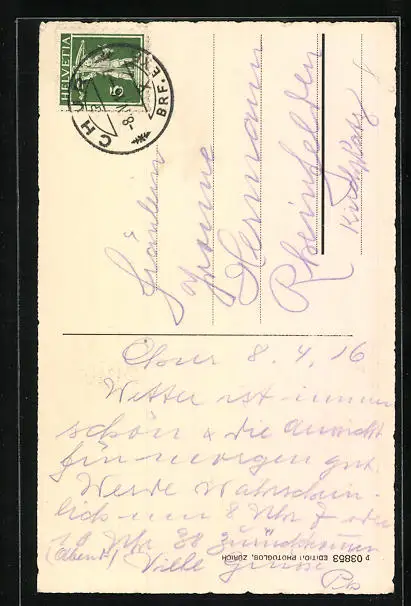 HELVETIA
5
CHUR
BRF. EXP.
Fräulein
Yvonne
Hermann
Rheinfelden
Chur 8. 4. 16
Wetter ist immer
schön & die Aussicht
für morgen gut.
Werde wahrschein-
lich um 8 Uhr
Uhr 38 zurückkommen
(Abend) Viele Grüsse
p 03853 EDITION PHOTOGLOB, ZÜRICH